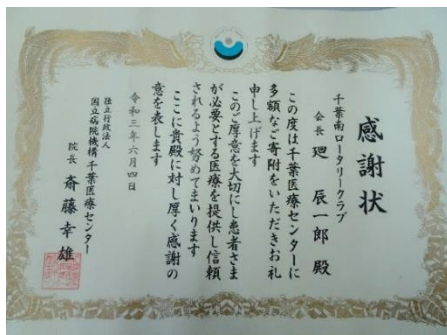 感謝状
千葉南ロータリークラブ
会長 廻 辰一郎 殿
この度は千葉医療センターに
多額なご寄附をいただきお礼
申し上げます
このご厚意を大切にし患者さま
が必要とする医療を提供し信頼
されるよう努めてまいります
ここに貴殿に対し厚く感謝の
意を表します
令和三年六月四日
独立行政法人
国立病院機構千葉医療センター
院長 斎藤幸雄